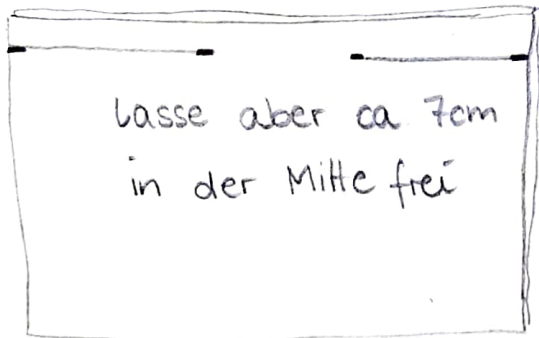 lasse aber ca 7cm
in der Mitte frei